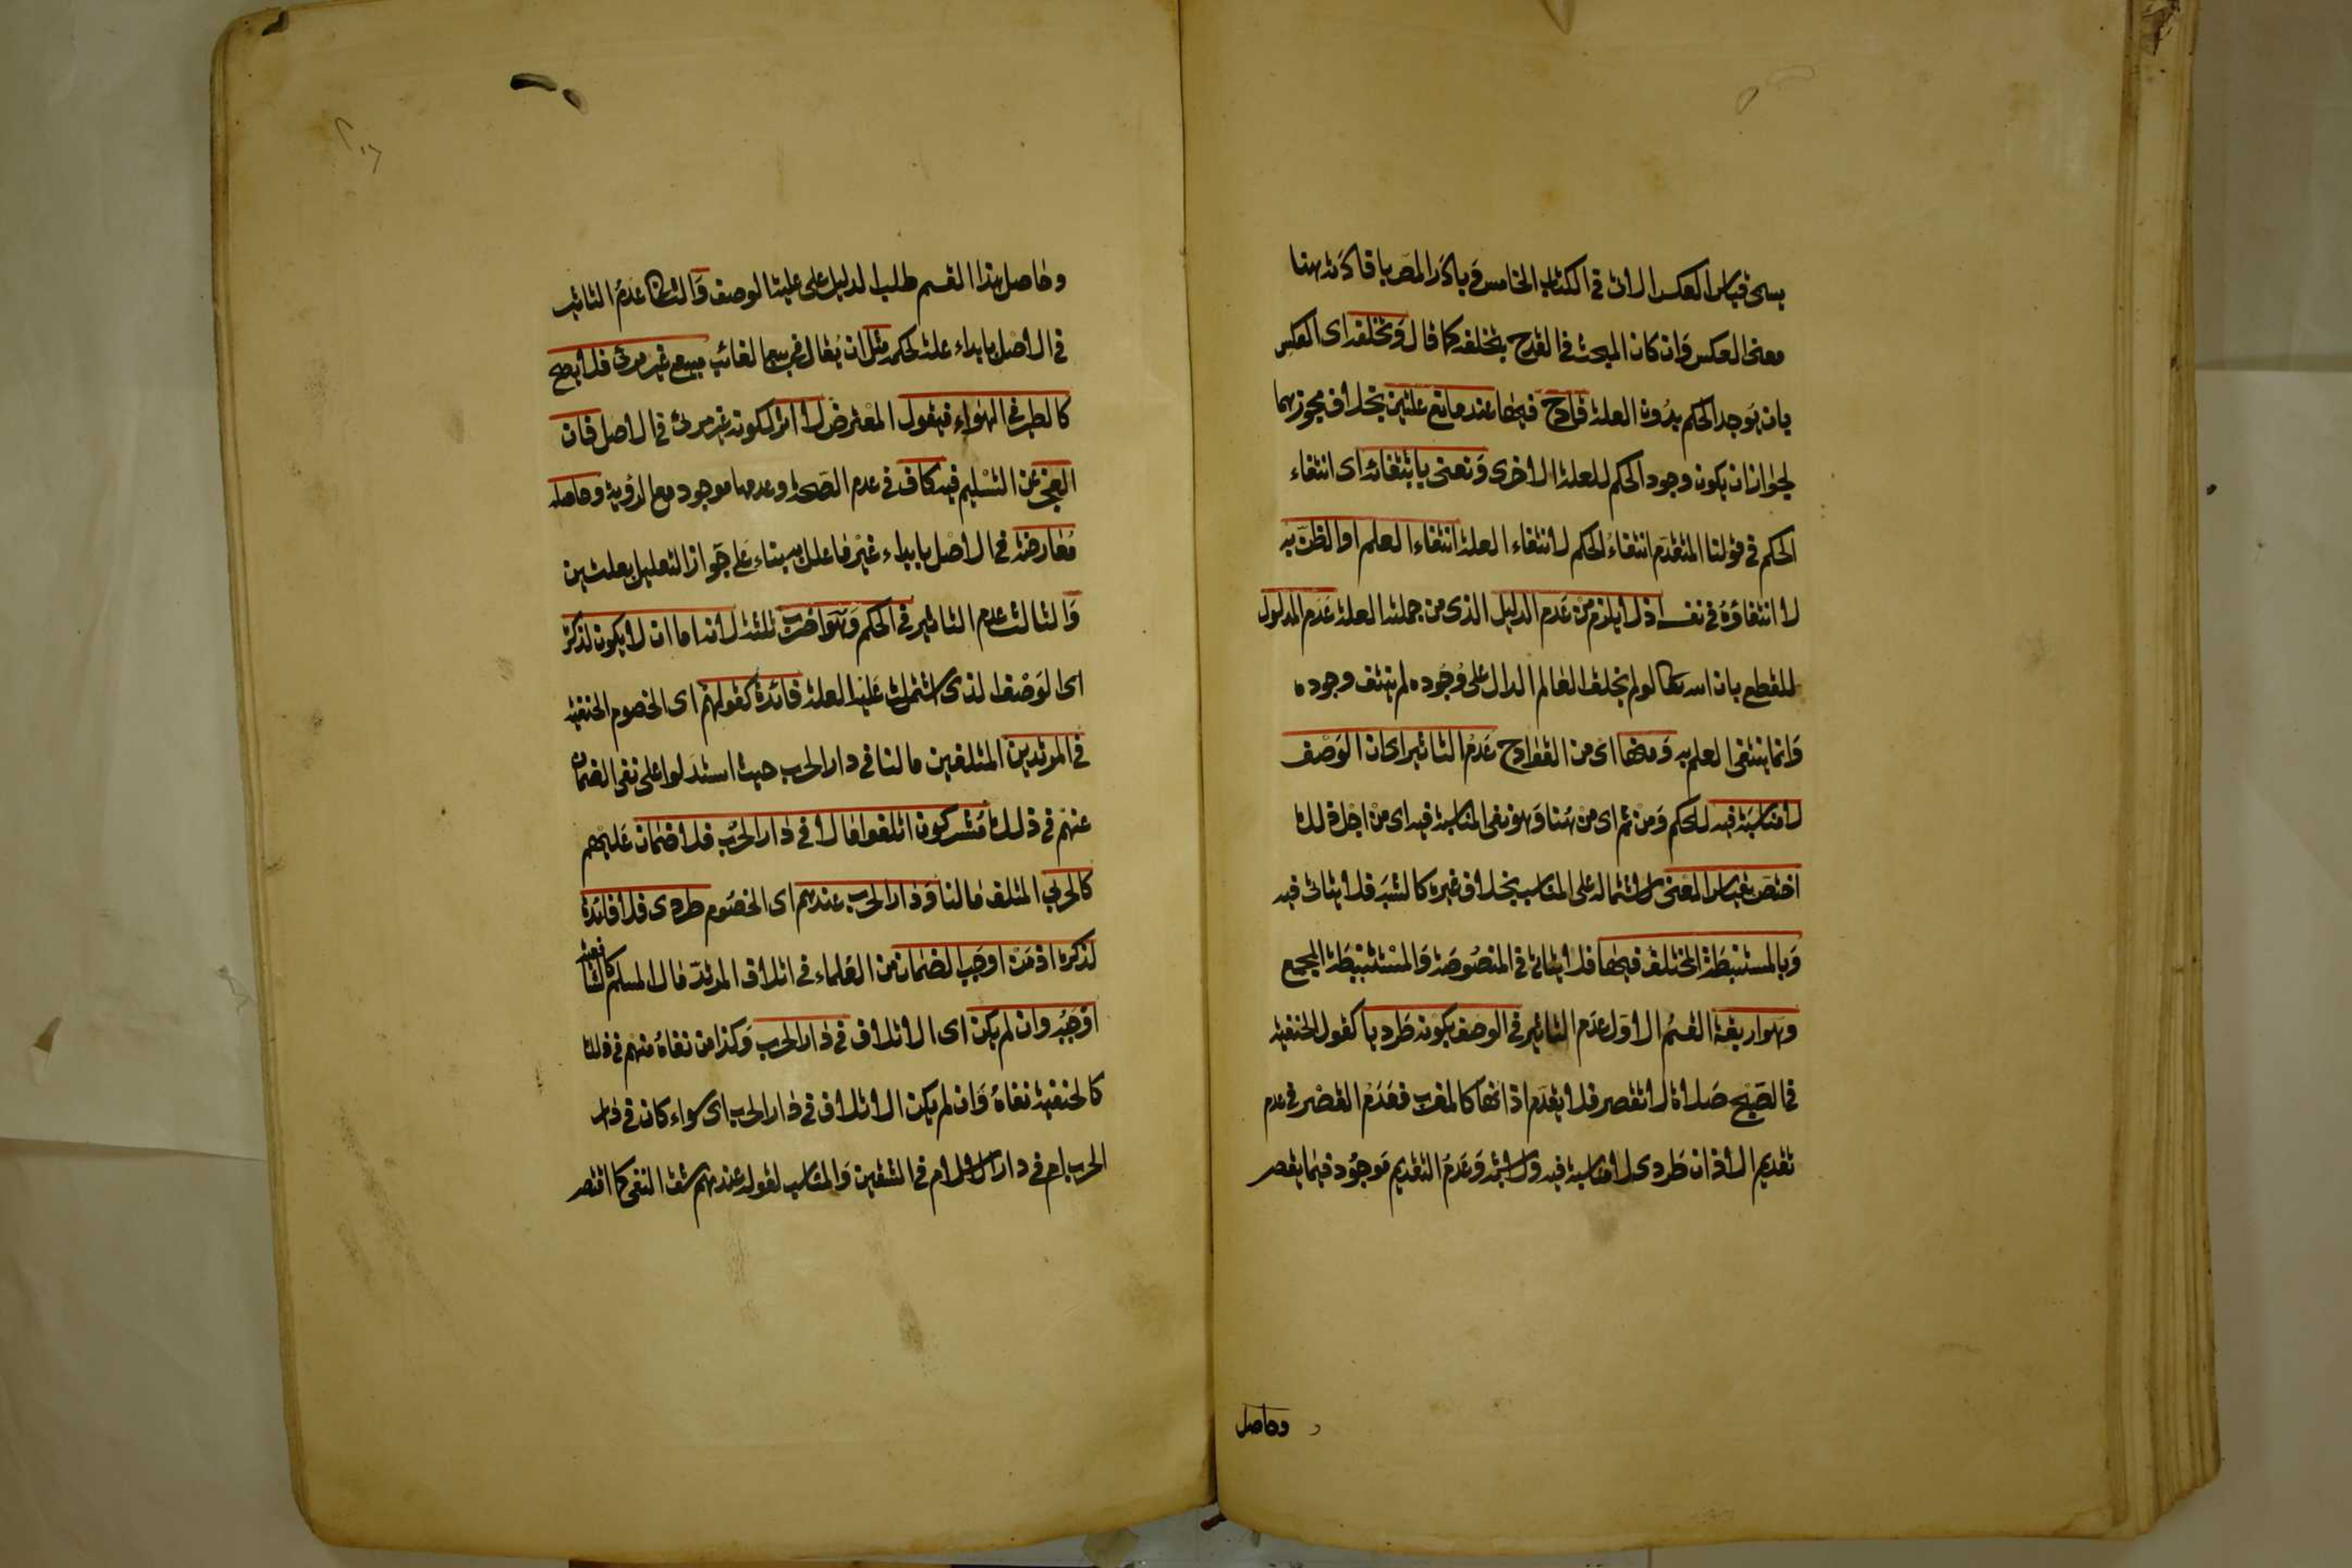 يسمى قياس العكس الاتى فى الكتاب الخامس وبادر المصر بافادته هنا
معنى العكس وان كان المبحث فى القدح بتخلفه كما قال وتخلفه اى العكس
بان يوجد الحكم بدون العلة قادح فيها عند مانع علتين بخلاف مجوزهما
لجواز ان يكون وجود الحكم للعلة الاخرى ونعنى بانتفائه اى انتفاء
الحكم فى قولنا المتقدم انتفاء الحكم لانتفاء العلة انتفاء العلم او الظن به
لا انتفاؤه فى نفسه اذ لا يلزم من عدم الدليل الذى من جملته العلة عدم المدلول
للقطع بان الله تعالى لو لم يخلف العالم الدال على وجوده لم ينتف وجوده
وانما ينتفى العلم به ومنها اى من القوادح عدم التاثير اى ان الوصف
لا مناسبة فيه للحكم ومن ثم اى من هنا وهو نفى المناسبة فيه اى من اجل ذلك
اختص بقياس المعنى لاشتماله على المناسب بخلاف غيره كالشبه فلا يتاتى فيه
وبالمستنبطة المختلف فيها فلا يتاتى فى المنصوصة والمستنبطة المجمع
وهو اربعة القسم الاول عدم التاثير فى الوصف بكونه طرديا كقول الحنفية
فى الصبح صلاة لا تقصر فلا يقدم اذانها كالمغرب فعدم القصر فى عدم
تقديم الاذان طردى لا مناسبة فيه ولا شبه وعدم التقديم موجود فيما يقصر
وحاصل
وحاصل هذا القسم طلب الدليل على علية الوصف والثانى عدم التاثير
فى الاصل بابداء علة لحكمه مثل ان يقال فى بيع الغائب مبيع غير مرئى فلا يصح
كالطير فى الهواء فيقول المعترض لا اثر لكونه غير مرئى فى الاصل فان
العجز عن التسليم فيه كاف فى عدم الصحة وعدمها موجود مع الرؤية وحاصله
معارضة فى الاصل بابداء غير ما علل به بناء على جواز التعليل بعلتين
والثالث عدم التاثير فى الحكم وهو اضرب ثلثة لانه اما ان لا يكون لذكره
اى الوصف الذى اشتملت عليه العلة فائدة كقولهم اى الخصوم الحنفية
فى المرتدين المتلفين مالنا فى دار الحرب حيث استدلوا على نفى الضمان
عنهم فى ذلك مشركون اتلفوا مالا فى دار الحرب فلا ضمان عليهم
كالحربى المتلف مالنا ودار الحرب عندهم اى الخصوم طردى فلا فائدة
لذكره اذ من اوجب الضمان من العلماء فى اتلاف المرتد مال المسلم كالشافعية
اوجبه وان لم يكن اى الاتلاف فى دار الحرب وكذا من نفاه منهم فى ذلك
كالحنفية نفاه وان لم يكن الاتلاف فى دار الحرب اى سواء كان فى دار
الحرب ام فى دار الاسلام فى الشقين والمناسب لقوله عندهم شق النفى كما اقتصر